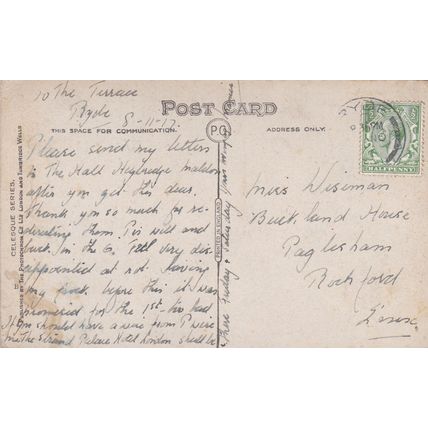 10 The Terrace
Ryde 8-11-17
POST CARD
THIS SPACE FOR COMMUNICATION.
P.C.
ADDRESS ONLY.
Please send my letters
to The Hall Heybridge Maldon
after you get this dear.
Thank you so much for re-
directing them.
but. In the G. very dis-
appointed at not having
my frock before this it was
promised for the 1st.
If you should have a wire from P wire
me The Strand Palace Hotel London shall be
there Friday & Saturday
Miss Wiseman
Buckland House
Paglesham
Rochford
Essex
RYDE
PM
HALFPENNY
CELESQUE SERIES.
PUBLISHED BY THE PHOTOCHROM CO LTD LONDON AND TUNBRIDGE WELLS
PRINTED IN ENGLAND